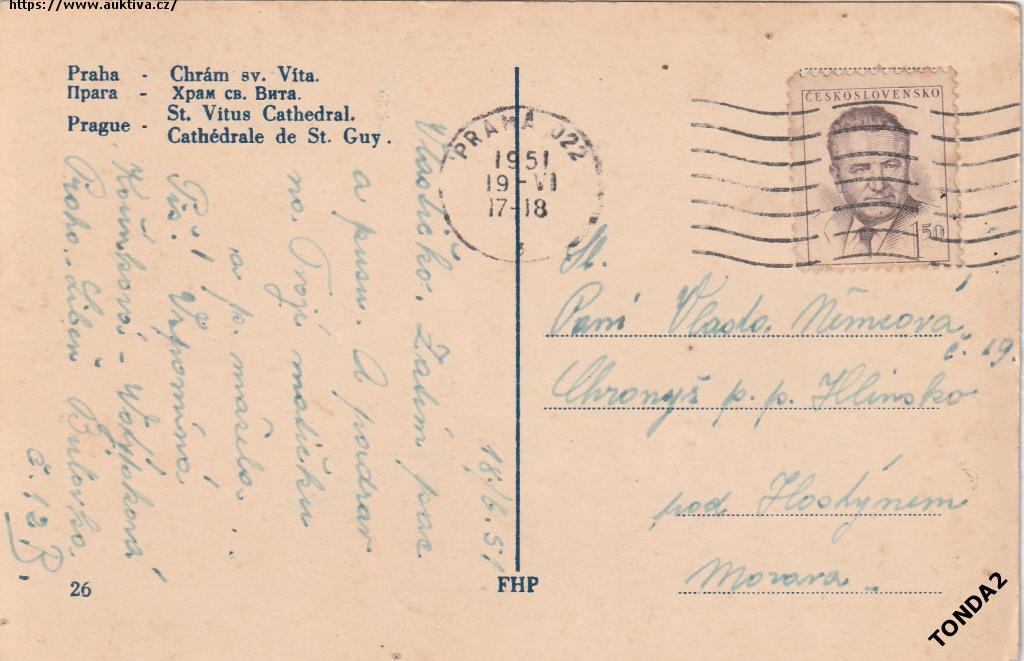 https://www.auktiva.cz/
Praha - Chrám sv. Víta.
Прага - Храм св. Вита.
Prague - St. Vitus Cathedral.
Cathédrale de St. Guy.
PRAHA 022
1951
19-VI
17-18
ČESKOSLOVENSKO
1 50
18/6. 51
Vlastičko. Zatím pac
a pusu. A pozdrav
na Tvoji matičku
a p.
Tiš. Vzpomíná
Praha. Libeň Bulovka
č. 12 B.
Paní Vlasta Němcova
č. 19.
p. p. Hlinsko
pod Hostýnem
Morava
26
FHP
TONDA2